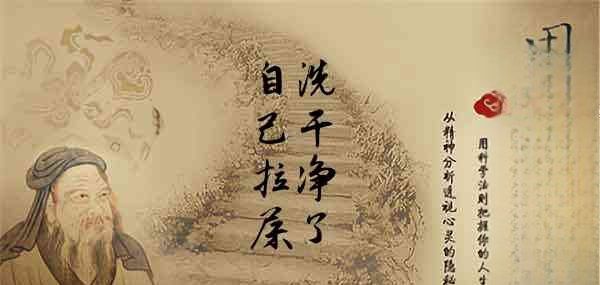 用科学法则把握你的人生
从精神分析透视心灵的隐秘
洗干净了
自己拉屎